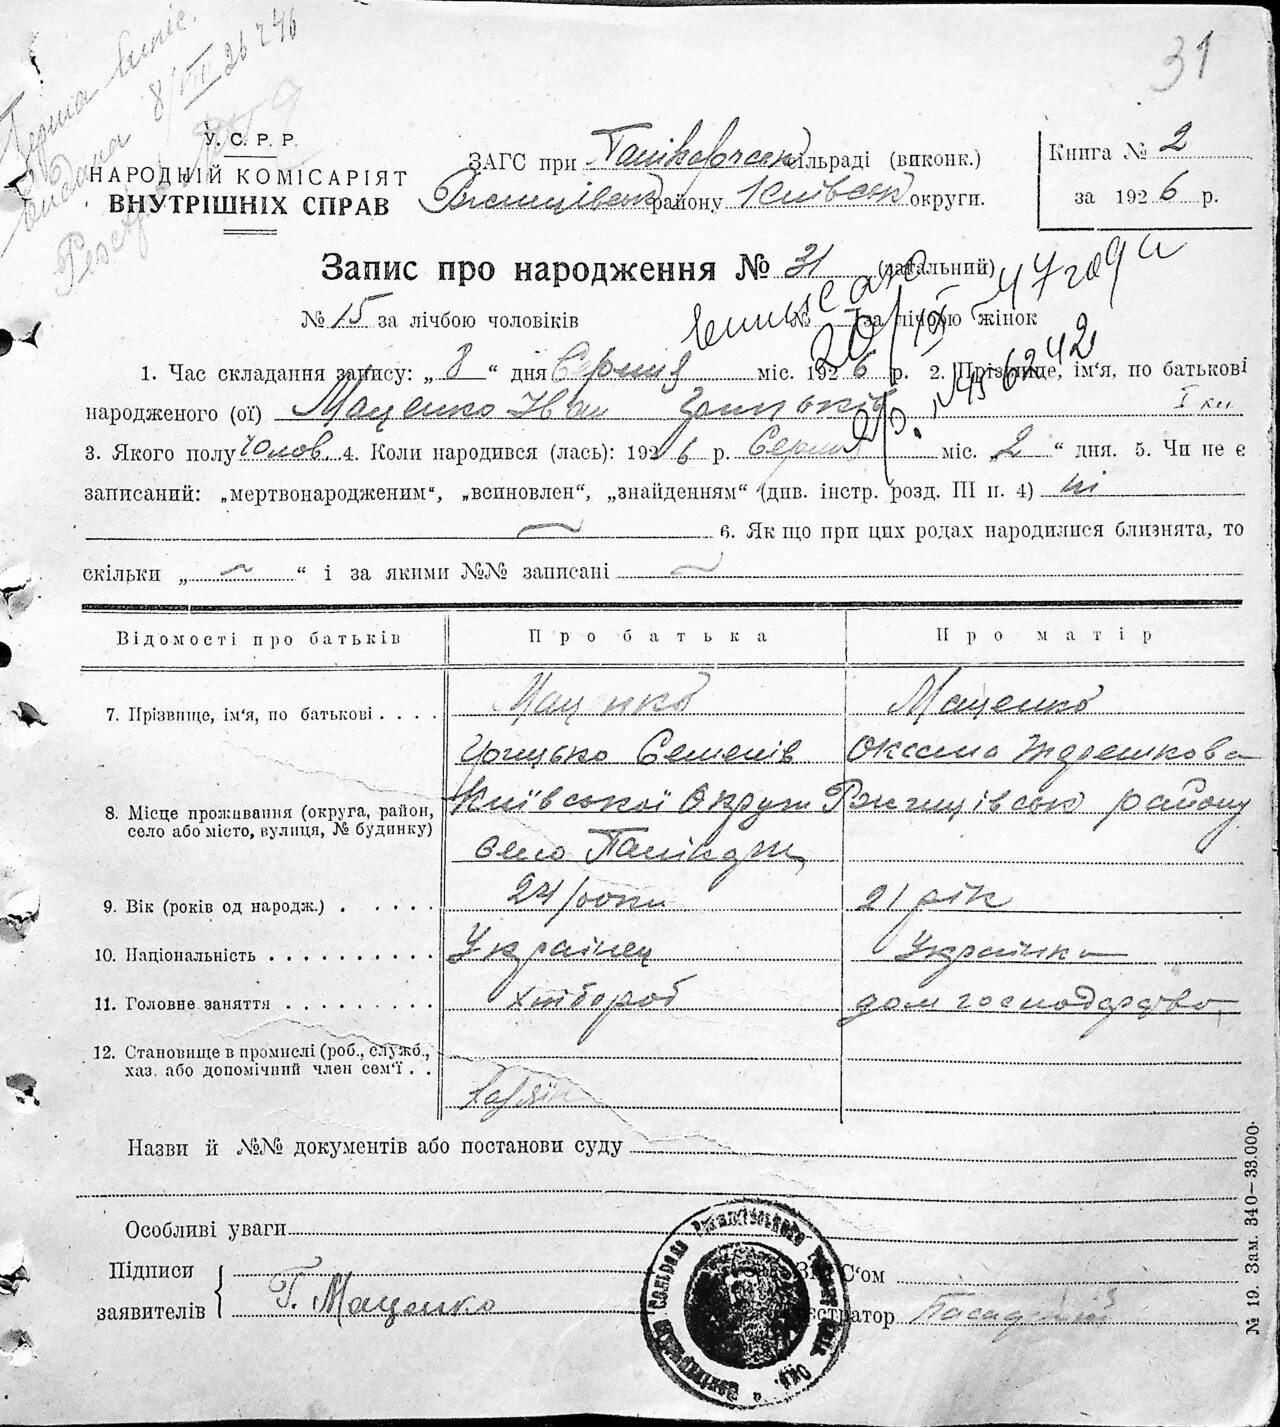 31
8/VII 26
У. С. Р. Р.
НАРОДНІЙ КОМІСАРІЯТ
ВНУТРІШНІХ СПРАВ
ЗАГС при сільраді (виконк.)
району Київськ округи.
Книга № 2
за 1926 р.
Запис про народження № 31 (загальний)
№ 15 за лічбою чоловіків № за лічбою жінок
виписано 20/IX 47 года
1. Час складання запису: „ 8 “ дня Серпня міс. 1926 р. 2. Прізвище, ім'я, по батькові
народженого (ої) Маценко Іван
3. Якого полу чолов. 4. Коли народився (лась): 1926 р. Серпня міс. „2“ дня. 5. Чи не є
записаний: „мертвонародженим“, „всиновлен“, „знайденням“ (див. інстр. розд. III п. 4) ні
6. Як що при цих родах народилися близнята, то
скільки „ ~ “ і за якими №№ записані ~
Відомості про батьків Про батька Про матір
7. Прізвище, ім'я, по батькові . . . . Маценко Маценко
Грицько Семенів Оксана
8. Місце проживання (округа, район, село або місто, вулиця, № будинку) Київської Округи району
село
9. Вік (років од народж.) . . . . . 24 роки 21 рік
10. Національність . . . . . . . . . . Українец Українка
11. Головне заняття . . . . . . . . . хлібороб дом господарство
12. Становище в промислі (роб., служб., хаз. або допомічний член сем'ї . .
Назви й №№ документів або постанови суду
Особливі уваги
Підписи
заявителів Г. Маценко
ЗАГС'ом
Реєстратор
№ 19. Зам. 340—33.000.